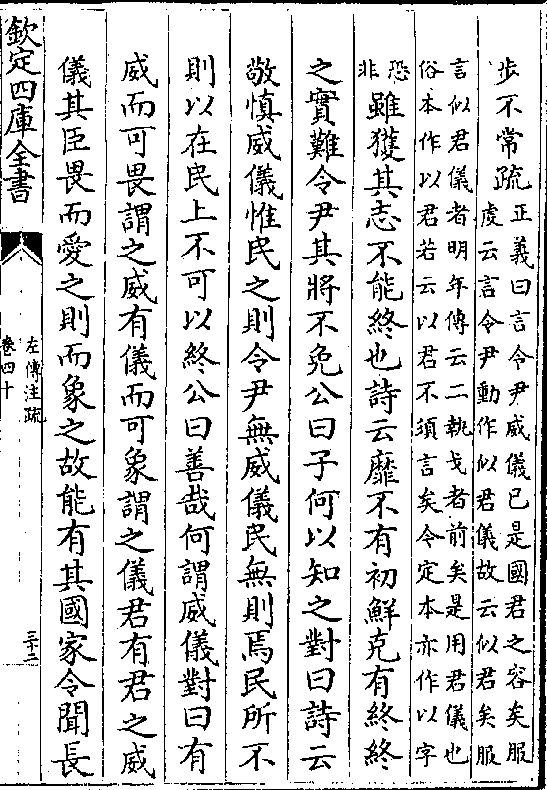 步不常疏正義曰言令尹威儀已是國君之容矣服
虔云言令尹動作似君儀故云似君矣服
言似君儀者明年傳云二執戈者前矣是用君儀也
俗本作以君若云以君不須言矣令定本亦作以字
恐
非雖獲其志不能終也詩云靡不有初鮮克有終終
之實難令尹其將不免公曰子何以知之對曰詩云
敬慎威儀惟民之則令尹無威儀民無則焉民所不
則以在民上不可以終公曰善哉何謂威儀對曰有
威而可畏謂之威有儀而可象謂之儀君有君之威
儀其臣畏而愛之則而象之故能有其國家令聞長
欽定四庫全書
左傳注疏
卷四十
三十二